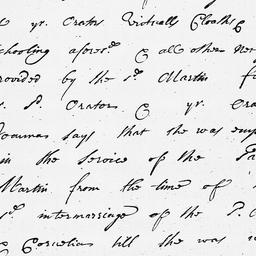 yr. Orator Victually Cloath &
schooling afores.d & all other Ne
provided by the s.d Martin f
s. P. Orator & yr. Ora
Joannas says that she was emp
in the Service of the Pa
Martin from the time of
s.d intermarriage of the P. O
& Cornelias till the was